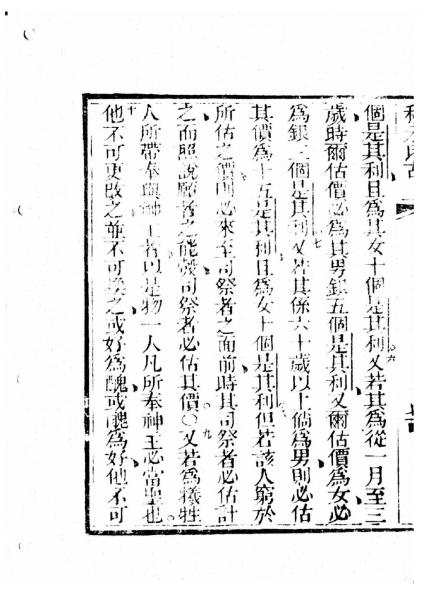 個是其利且為其女十個是其利六又若其為從一月至三
歲時爾估價必為其男銀五個是其利又爾估價為女必
為銀三個是其利七又若其係六十歲以上倘為男則必估
其價為十五是其利且為女十個是其利八但若該人窮於
所估之價則必來至司祭者之面前時其司祭者必估計
之而照說願者之能彀司祭者必估其價○九又若為犧牲
人所帶奉與神主者以是物一人凡所奉神主必當聖也
十他不可更改之並不可換之或好為醜或醜為好他不可